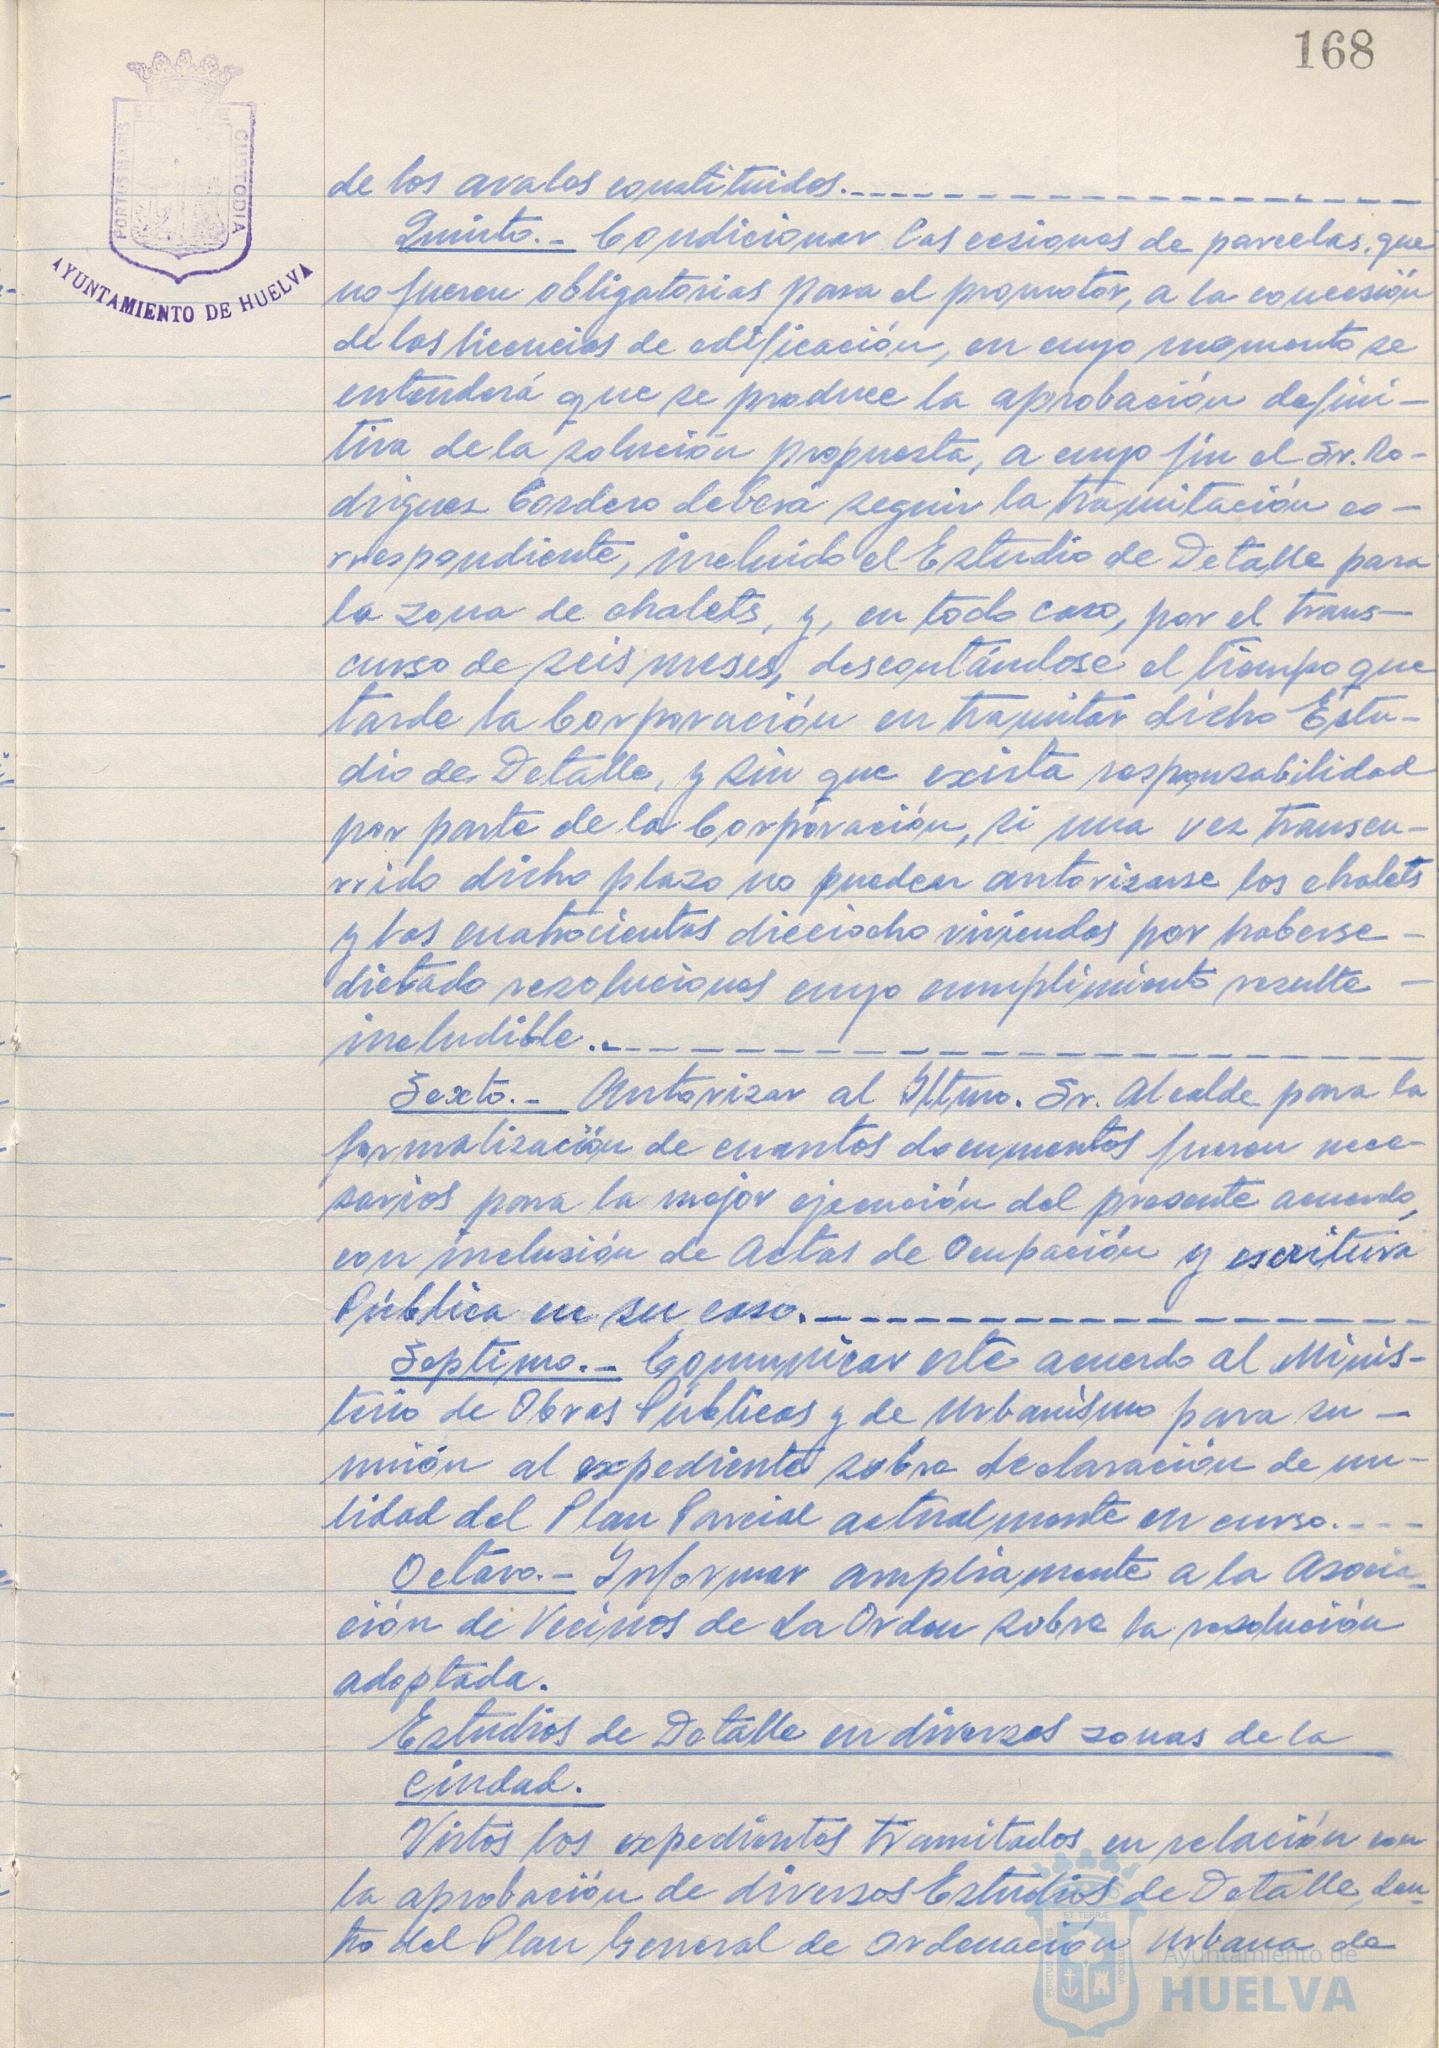 168
PORTUS MARIS ET TERRÆ CUSTODIA
AYUNTAMIENTO DE HUELVA
de los avales constituidos.
Quinto.- Condicionar las cesiones de parcelas, que
no fueren obligatorias para el promotor, a la concesión
de las licencias de edificación, en cuyo momento se
entenderá que se produce la aprobación defini-
tiva de la solución propuesta, a cuyo fin el Sr. Ro-
driguez Cordero deberá seguir la tramitación co-
rrespondiente, incluido el Estudio de Detalle para
la zona de chalets, y, en todo caso, por el trans-
curso de seis meses, descontándose el tiempo que
tarde la Corporación en tramitar dicho Estu-
dio de Detalle, y sin que exista responsabilidad
por parte de la Corporación, si una vez transcu-
rrido dicho plazo no pueden autorizarse los chalets
y las cuatrocientas dieciocho viviendas por haberse-
dictado resoluciones cuyo cumplimiento resulte -
ineludible.
Sexto.- Autorizar al Iltmo. Sr. Alcalde para la
formalización de cuantos documentos fueren nece-
sarios para la mejor ejecución del presente acuerdo,
con inclusión de Actas de Ocupación y escritura
Pública en su caso.
Septimo.- Comunicar este acuerdo al Minis-
terio de Obras Públicas y de Urbanismo para su -
unión al expediente sobre declaración de nu-
lidad del Plan Parcial actualmente en curso.
Octavo.- Informar ampliamente a la Asocia-
ción de Vecinos de La Orden sobre la resolución
adoptada.
Estudios de Detalle en diversas zonas de la
ciudad.
Vistos los expedientes tramitados en relación con
la aprobación de diversos Estudios de Detalle, den-
tro del Plan General de Ordenación Urbana de
Ayuntamiento de
HUELVA